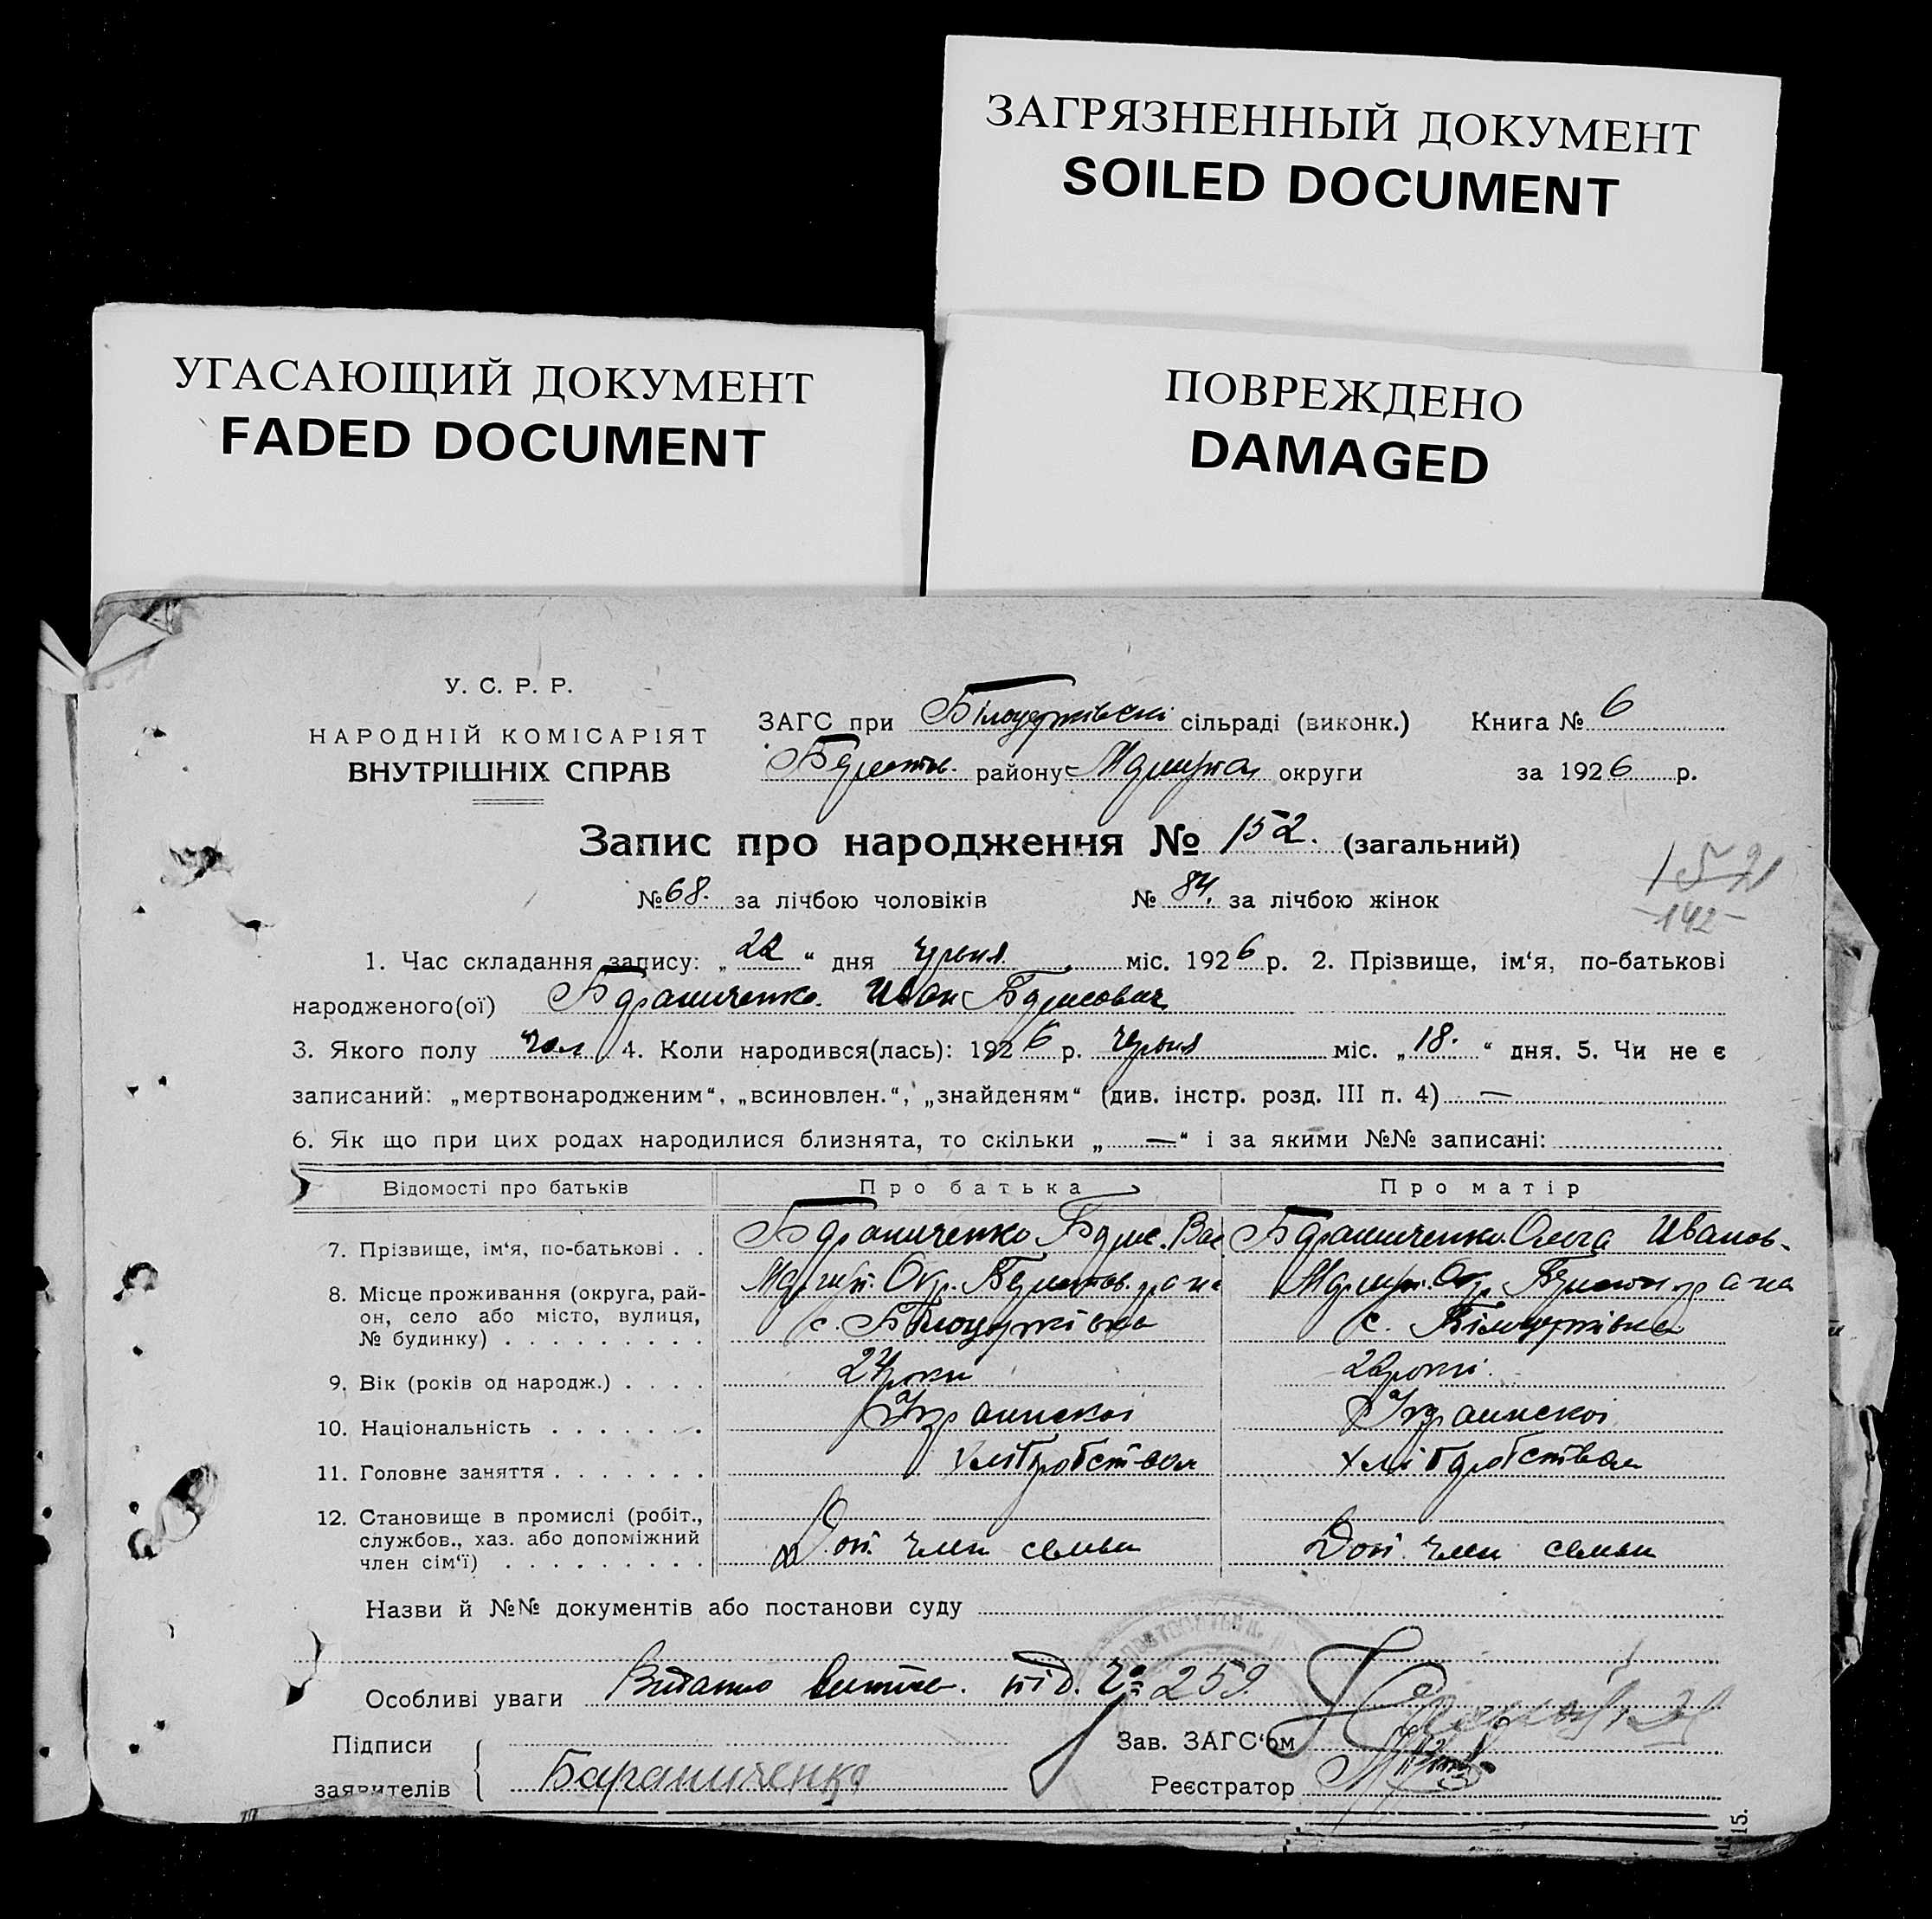 ЗАГРЯЗНЕННЫЙ ДОКУМЕНТ
SOILED DOCUMENT
УГАСАЮЩИЙ ДОКУМЕНТ
FADED DOCUMENT
ПОВРЕЖДЕНО
DAMAGED
У. С. Р. Р.
НАРОДНІЙ КОМІСАРІЯТ
ВНУТРІШНІХ СПРАВ
ЗАГС при сільраді (виконк.) Книга № 6
району округи за 1926 р.
Запис про народження № 152. (загальний)
1521
-142-
№ 68. за лічбою чоловіків № 84. за лічбою жінок
1. Час складання запису: „22“ дня міс. 1926 р. 2. Прізвище, ім‘я, по-батькові
народженого(ої) Бараниченко. Иван Борисович
3. Якого полу чол 4. Коли народився(лась): 1926 р. міс. „18.“ дня. 5. Чи не є
записаний: „мертвонародженим“, „всиновлен.“, „знайденям“ (див. інстр. розд. III п. 4) —
6. Як що при цих родах народилися близнята, то скільки „—“ і за якими №№ записані:
Відомості про батьків Про батька Про матір
7. Прізвище, ім‘я, по-батькові . . Бараниченко Борис. Вас Бараниченко Ольга Иванов.
8. Місце проживання (округа, рай-
он, село або місто, вулиця,
№ будинку) . . . . . . . . .
9. Вік (років од народж.) . . . . 24 роки роки
10. Національність . . . . . . . Украинскоі Украинскоі
11. Головне заняття . . . . . . . хліборобством хліборобством
12. Становище в промислі (робіт.,
службов., хаз. або допоміжний
член сім‘ї) . . . . . . . . . Доп. член семьи Доп. член семьи
Назви й №№ документів або постанови суду
Особливі уваги Видано витяг. під. № 259
Підписи
заявителів Бараниченко
Зав. ЗАГС‘ом
Реєстратор
15.